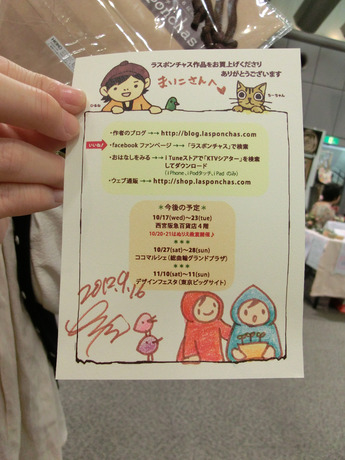 ponchas
ラスポンチャス作品をお買上げくださり
ありがとうございます
まいこさんへ
ちーちゃん
・作者のブログ →→ http://blog.lasponchas.com
いいね!
・facebook ファンページ →→ 「ラスポンチャス」で検索
・おはなしをみる →→ i Tuneストアで「KTVシアター」を検索
してダウンロード
(i Phone、i Podタッチ、i Pad のみ)
・ウェブ通販 →→ http://shop.lasponchas.com
＊今後の予定＊
10/17(wed)～23(tue)
西宮阪急百貨店4階
10/27(sat)～28(sun)
ココマルシェ(総曲輪グランドプラザ)
11/10(sat)～11(sun)
デザインフェスタ(東京ビッグサイト)
2012.9.16